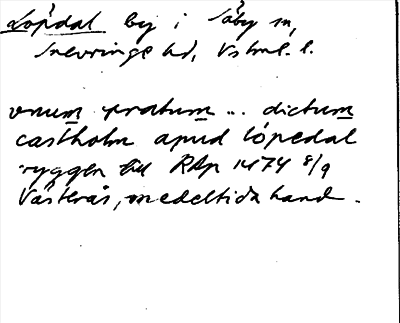 Löpdal by i Säby sn,
Snevringe hd, Vstml. l.
vnum pratum ... dictum
castholm apud löpedal
ryggen till RAp 1474 8/9
Västerås, medeltida hand.